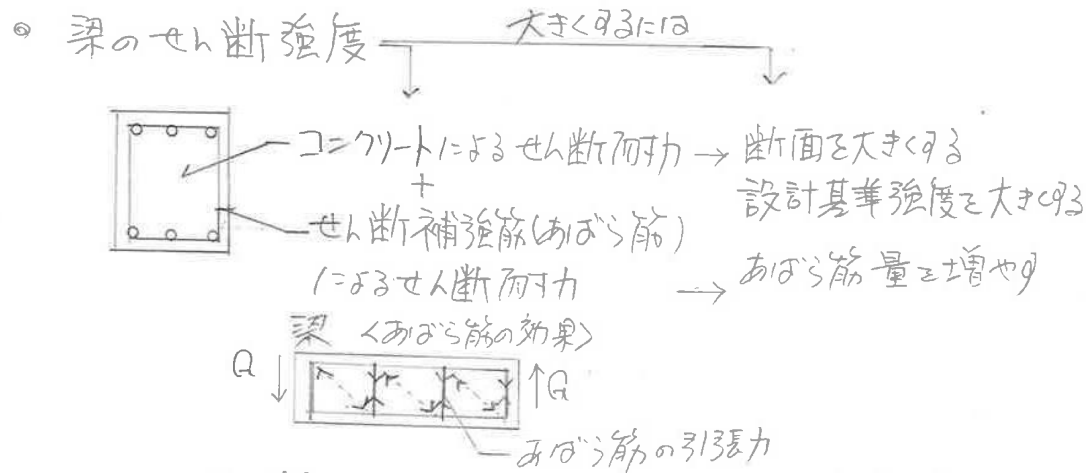 梁のせん断強度
大きくするには
コンクリートによるせん断耐力 → 断面を大きくする
+
設計基準強度を大きくする
せん断補強筋(あばら筋)
によるせん断耐力 → あばら筋量を増やす
梁 <あばら筋の効果>
Q ↓ ↑Q
あばら筋の引張力